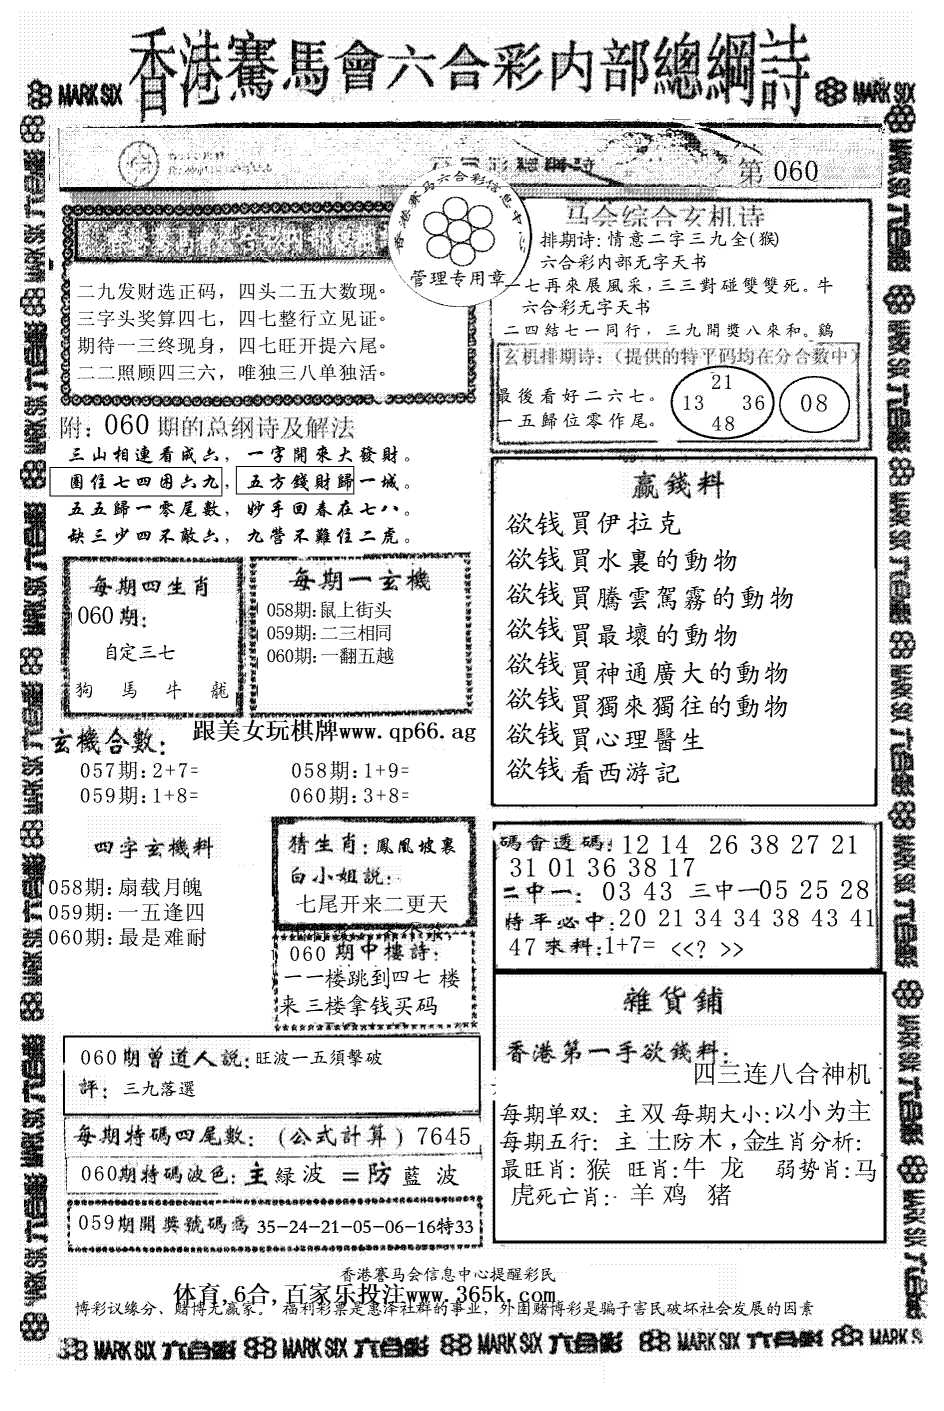 香港賽馬會六合彩内部總綱詩
MARK SIX
MARK SIX
第 060
香港赛马六合彩信息中心
管理专用章
二九发财选正码，四头二五大数现。
三字头奖算四七，四七整行立见证。
期待一三终现身，四七旺开提六尾。
二二照顾四三六，唯独三八单独活。
马会综合玄机诗
排期诗:情意二字三九全(猴)
六合彩内部无字天书
一七再來展風采,三三對碰雙雙死。牛
六合彩无字天书
二四结七一同行，三九開獎八來和。鷄
玄机排期诗:（提供的特平码均在分合数中）
最後看好二六七。
一五歸位零作尾。
21
13 36
48
08
附: 060 期的总纲诗及解法
三山相連看成六，一字開來大發財。
圍住七四困六九，五方錢財歸一城。
五五歸一零尾數，妙手回春在七八。
缺三少四不敵六，九營不難住二虎。
每期四生肖
060期:
自定三七
狗 馬 牛 龍
每期一玄機
058期:鼠上街头
059期:二三相同
060期:一翻五越
赢錢料
欲钱買伊拉克
欲钱買水裏的動物
欲钱買騰雲駕霧的動物
欲钱買最壞的動物
欲钱買神通廣大的動物
欲钱買獨來獨往的動物
欲钱買心理醫生
欲钱看西游記
跟美女玩棋牌www.qp66.ag
玄機合數:
057期:2+7=
058期:1+9=
059期:1+8=
060期:3+8=
四字玄機料
058期:扇载月魄
059期:一五逢四
060期:最是难耐
猜生肖:鳳凰坡裏
白小姐説:
七尾开来二更天
060 期中樓詩:
一一楼跳到四七 楼
来 三楼拿钱买码
碼會透碼:12 14 26 38 27 21
31 01 36 38 17
二中一: 03 43 三中一05 25 28
特平必中:20 21 34 34 38 43 41
47 來料:1+7= <<? >>
雜貨鋪
香港第一手欲錢料:
四三连八合神机
每期单双: 主 双 每期大小:以小为主
每期五行: 主 土防木，金生肖分析:
最旺肖: 猴 旺肖:牛 龙 弱势肖:马
虎死亡肖: 羊 鸡 猪
060期曾道人説:旺波一五須擊破
評: 三九落選
每期特碼四尾數:（公式計算）7645
060期特碼波色:主緑波＝防藍波
059期開獎號碼爲 35-24-21-05-06-16特33
香港赛马会信息中心提醒彩民
体育,6合,百家乐投注www.365k.com
博彩议缘分、赌博无赢家。 福利彩票是惠泽社群的事业，外围赌博彩是骗子害民破坏社会发展的因素
MARK SIX 六合彩 MARK SIX 六合彩 MARK SIX 六合彩 MARK SIX 六合彩 MARK SIX